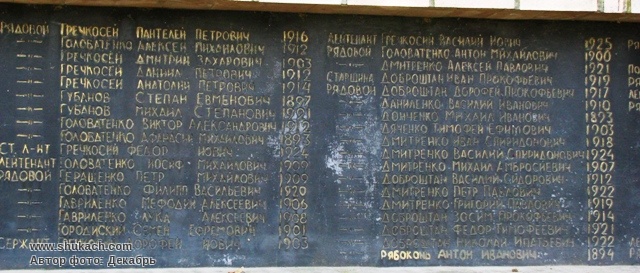 РЯДОВОЙ ГРЕЧКОСЕЙ ПАНТЕЛЕЙ ПЕТРОВИЧ 1916
ГОЛОВАТЕНКО АЛЕКСЕЙ МИХАЙЛОВИЧ 1912
ГРЕЧКОСЕЙ ДМИТРИЙ ЗАХАРОВИЧ 1903
ГРЕЧКОСЕЙ ДАНИИЛ ПЕТРОВИЧ 1912
ГРЕЧКОСЕЙ АНАТОЛИЙ ПЕТРОВИЧ 1914
ГУБАНОВ СТЕПАН ЕВМЕНОВИЧ 1897
ГУБАНОВ МИХАИЛ СТЕПАНОВИЧ
ГОЛОВАТЕНКО ВИКТОР АЛЕКСАНДРОВИЧ
ГОЛОВАТЕНКО МИХАЙЛОВИЧ
СТ. Л-НТ ГРЕЧКОСЕЙ ФЕДОР
ЛЕЙТЕНАНТ ГОЛОВАТЕНКО ИОСИФ МИХАЙЛОВИЧ
РЯДОВОЙ ГЕРАЩЕНКО ПЕТР МИХАЙЛОВИЧ
ГОЛОВАТЕНКО ФИЛИПП ВАСИЛЬЕВИЧ 1920
ГАВРИЛЕНКО МЕФОДИЙ АЛЕКСЕЕВИЧ 1906
ГАВРИЛЕНКО ЛУКА АЛЕКСЕЕВИЧ
ГОРОДИСКИЙ СЕМЕН ЕФРЕМОВИЧ 1901
1903
ЛЕЙТЕНАНТ ГРЕЧКОСИЙ ВАСИЛИЙ 1925
РЯДОВОЙ ГОЛОВАТЕНКО АНТОН МИХАЙЛОВИЧ 1900
ДМИТРЕНКО АЛЕКСЕЙ ПАВЛОВИЧ 1921
СТАРШИНА ДОБРОШТАН ИВАН ПРОКОФЬЕВИЧ 1919
РЯДОВОЙ ДОБРОШТАН ДОРОФЕЙ ПРОКОФЬЕВИЧ 1917
ДАНИЛЕНКО ВАСИЛИЙ ИВАНОВИЧ 1910
ДОЙЧЕНКО МИХАИЛ ИВАНОВИЧ 1893
ДЯЧЕНКО ТИМОФЕЙ ЕФИМОВИЧ 1903
ДМИТРЕНКО ИВАН СПИРИДОНОВИЧ 1918
ДМИТРЕНКО ВАСИЛИЙ СПИРИДОНОВИЧ 1924
ДМИТРЕНКО МИХАИЛ АМБРОСИЕВИЧ 1907
ДОБРОШТАН ВАСИЛИЙ 1912
ДМИТРЕНКО ПЕТР ПАВЛОВИЧ 1922
ДМИТРЕНКО ГРИГОРИЙ ПАВЛОВИЧ 1919
ДОБРОШТАН ЗОСИМ ПРОКОФЬЕВИЧ 1914
ДОБРОШТАН ФЕДОР ТИМОФЕЕВИЧ 1921
ДОБРОШТАН НИКОЛАЙ ИПАТОВИЧ 1922
РЯБОКОНЬ АНТОН ИВАНОВИЧ 1894
www.shukach.com
Автор фото: Декабрь